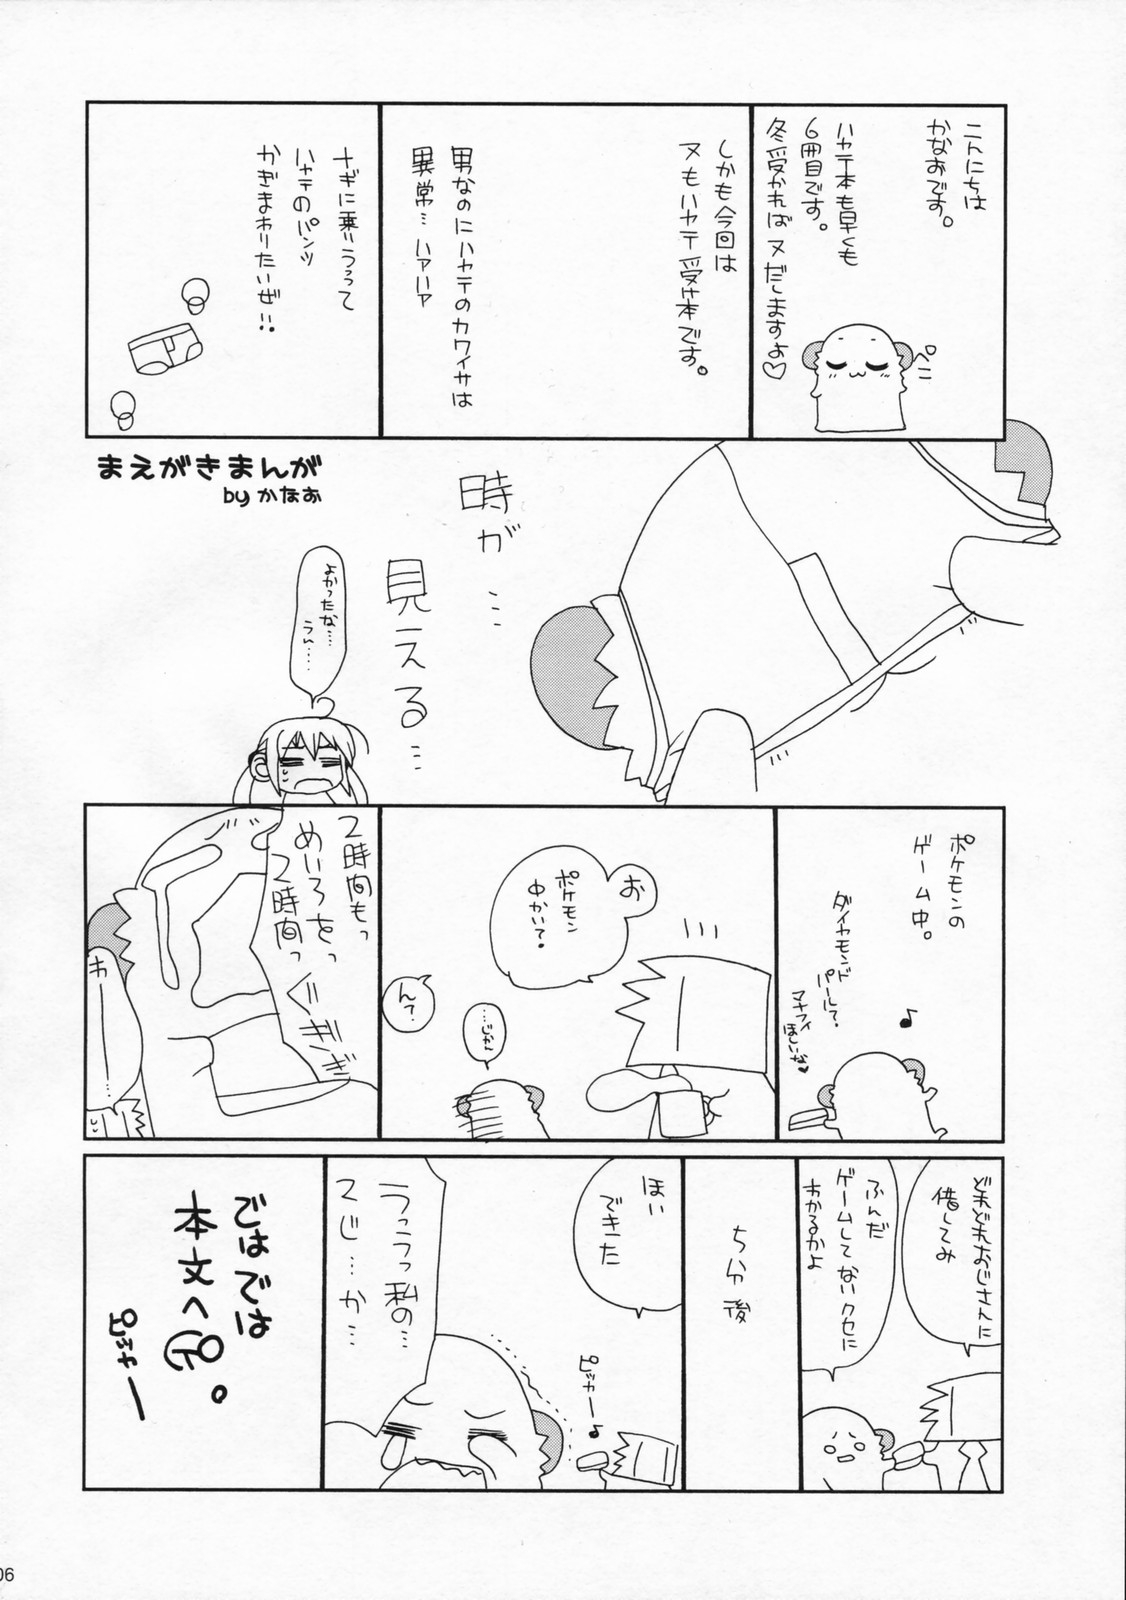 こんにちは
かなおです。
ハヤテ本も早くも
6冊目です。
冬受かればまただしますよ♡
ペこ
しかも今回は
またもハヤテ受け本です。
男なのにハヤテのカワイサは
異常…ハァハァ
ナギに乗りうつって
ハヤテのパンツ
かぎまわりたいぜ!!
まえがきまんが
by かなお
時が…
見える…
よかったな…
うん……
ポケモンの
ゲーム中。
ダイヤモンド
パールで。
マナフィ
ほしいな♥
♪
お
ポケモン
中かい?。
…じかん
んて。
2時間もっ
めいろをっ
2時間っ
ぐぎぎ
どれどれおじさんに
借してみ
ふんだ
ゲームしてないクセに
わかるかよ
5分後
ほい
できた
ピッカー♪
うっうっ私の…
2じ…か…
ではでは
本文へ
。